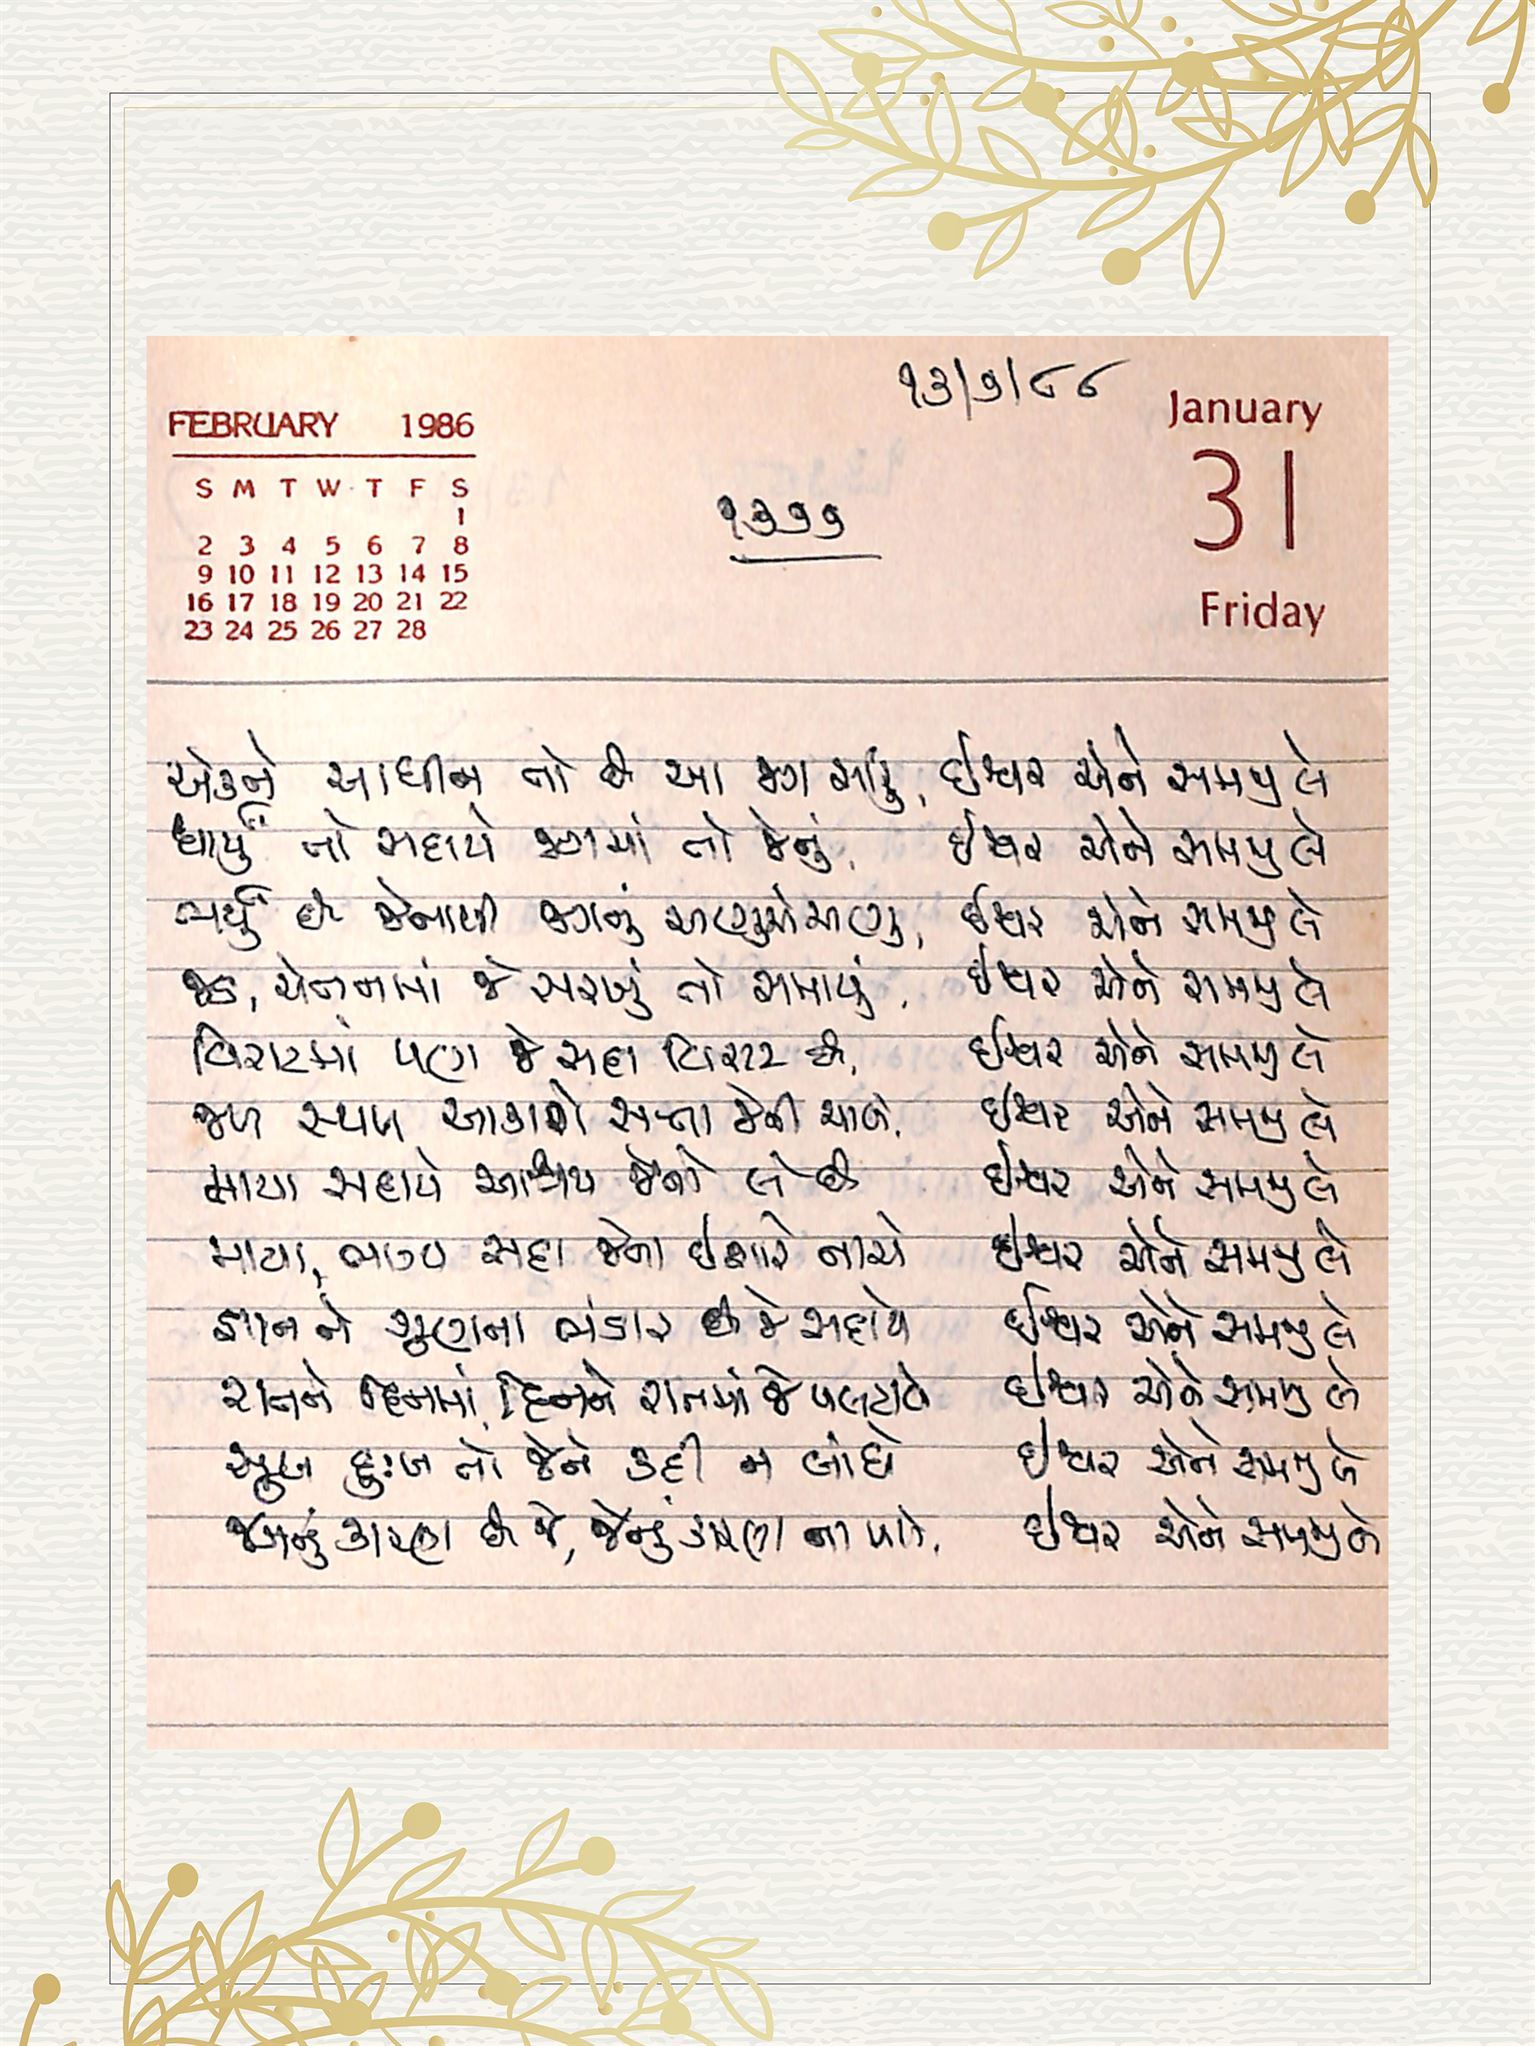 ૧૩/૧/૮૮
January
FEBRUARY 1986
31
S M T W T F S
1
2 3 4 5 6 7 8
9 10 11 12 13 14 15
16 17 18 19 20 21 22
23 24 25 26 27 28
૧૩૧૧
Friday
એકને આધીન તો છે આ જગ સારું, ઈશ્વર એને સમજી લે
ધાર્યું તો સદાયે જગમાં તો જેનું, ઈશ્વર એને સમજી લે
ભર્યું છે જેનાથી જગનું અણુએઅણુ, ઈશ્વર એને સમજી લે
જડ, ચેતનમાં જે સરખું તો સમાયું, ઈશ્વર એને સમજી લે
વિરાટમાં પણ જે સદા વિરાટ છે, ઈશ્વર એને સમજી લે
જળ સ્થળ આકાશે સત્તા જેની ચાલે, ઈશ્વર એને સમજી લે
માયા સદાયે આશ્રય જેનો લે છે ઈશ્વર એને સમજી લે
માયા, ભાગ્ય સદા જેના ઈશારે નાચે ઈશ્વર એને સમજી લે
જ્ઞાન ને ગુણના ભંડાર છે જે સદાયે ઈશ્વર એને સમજી લે
રાતને દિનમાં, દિનને રાતમાં જે પલટાવે ઈશ્વર એને સમજી લે
સુખ દુઃખ તો જેને કદી ન બાંધે ઈશ્વર એને સમજી લે
જગનું કારણ છે જે, જેનું કારણ ના મળે, ઈશ્વર એને સમજી લે